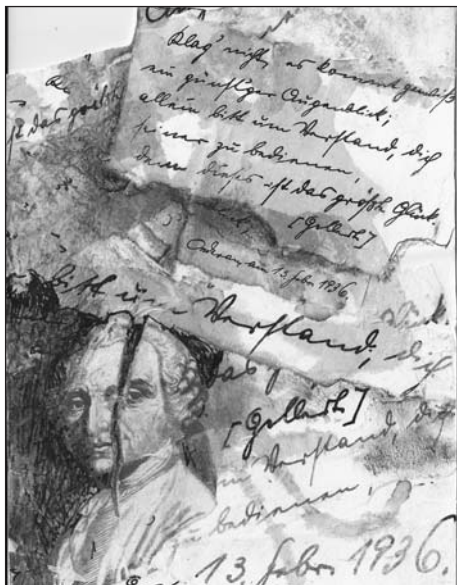 Klag' nicht, es kommt gewiß
ein günst'ger Augenblick;
allein bitt um Verstand, dich
seiner zu bedienen,
denn dieses ist das größte Glück.
[Gellert]
am 13. Febr. 1936.
Kl
st das größte
bitt um Verstand, dich
Glück.
das
[Gellert]
um Verstand, dich
zu bedienen,
13. Febr. 1936.